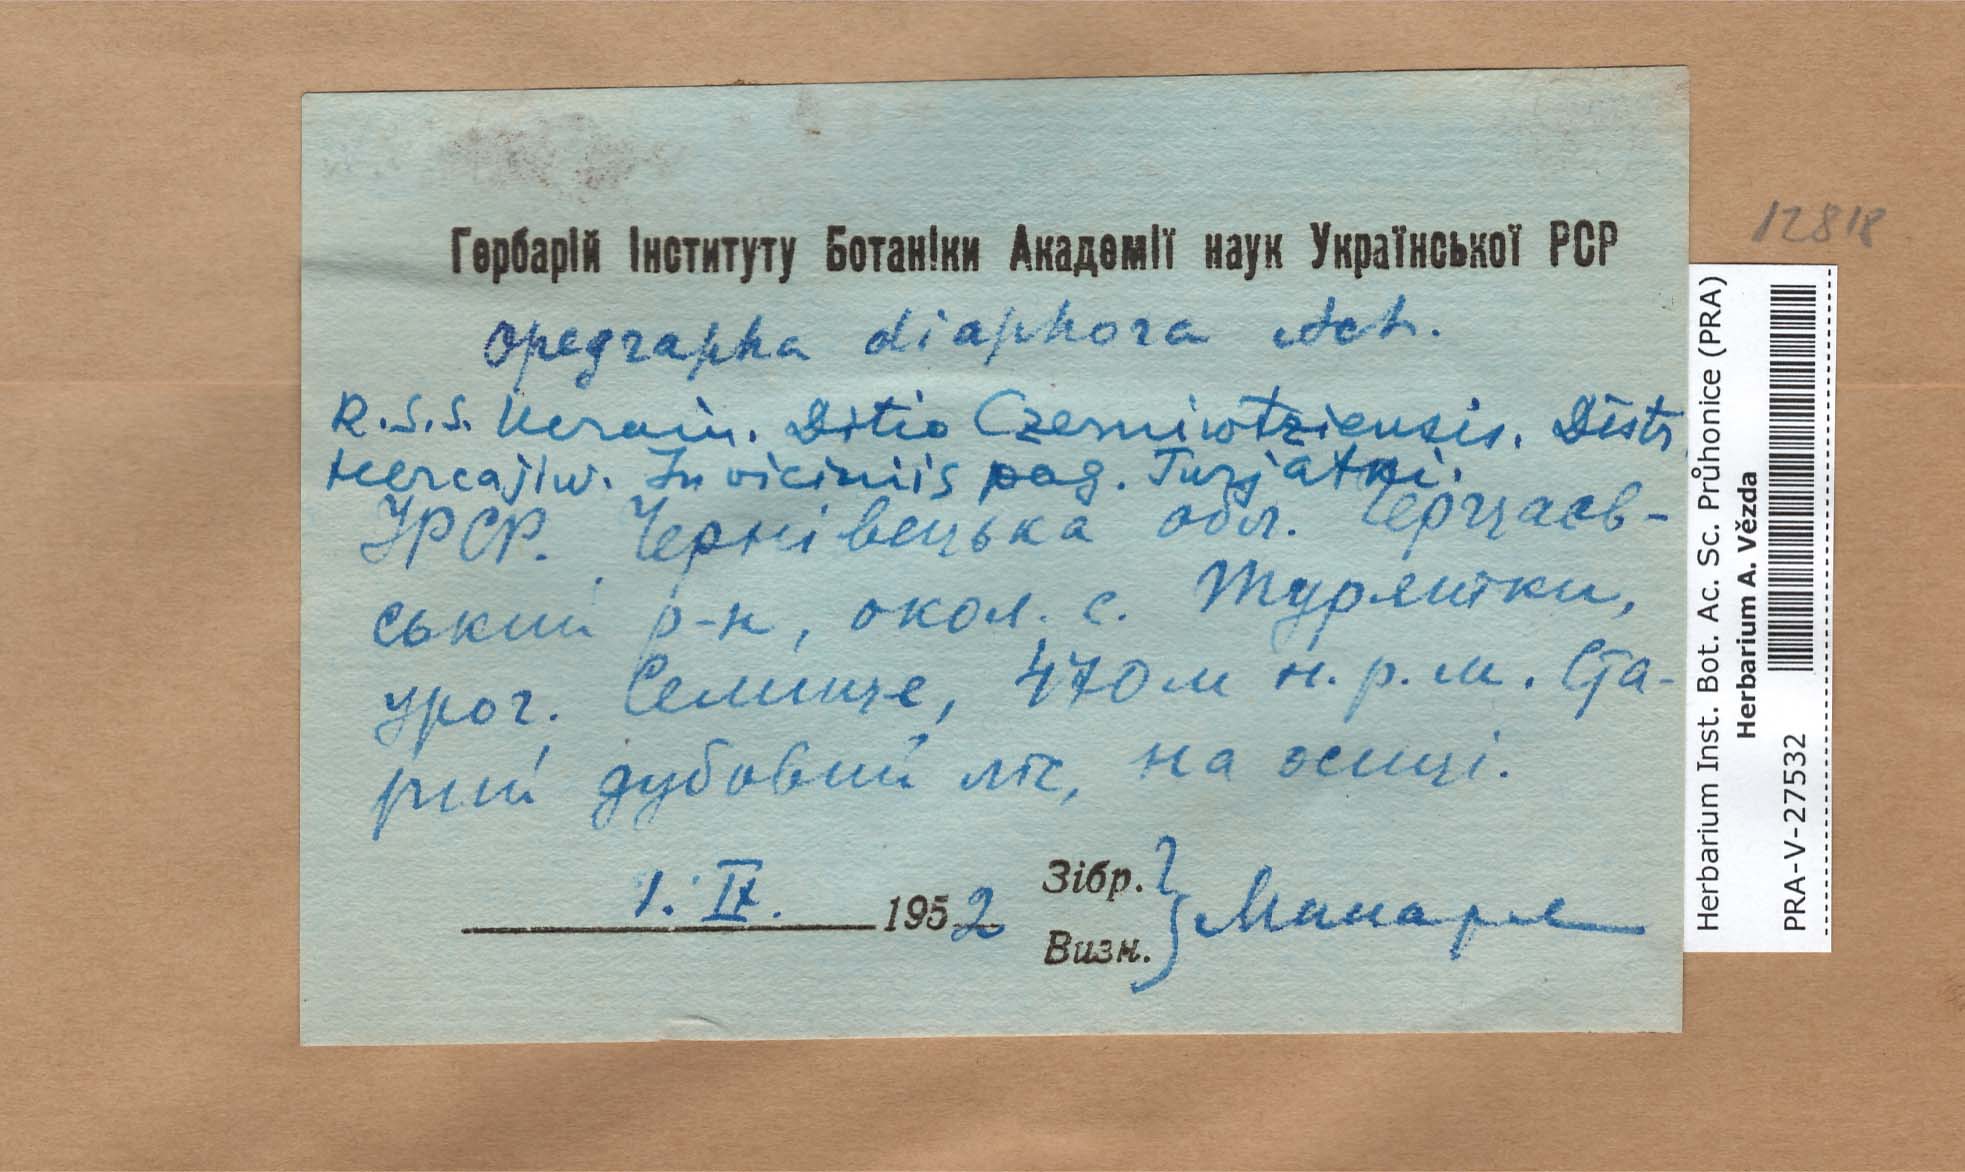 Гербарій Інституту Ботаніки Академії наук Української РСР
Opegrapha diaphora Ach.
R.S.S. Ucrain. Ditio Czerniwtziensis. Distr.
Hercajiw. In viciniis pag. Turjatki.
УРСР. Чернівецька обл. Герцаєв-
ський р-н, окол. с. Турятки,
уроч. Селище, 470 м н.р.м. Ста-
рий дубовий ліс, на осиці.
1. IX. 1952
Зібр.
Визн.
Макаре
12818
Herbarium Inst. Bot. Ac. Sc. Průhonice (PRA)
Herbarium A. Vězda
PRA-V-27532